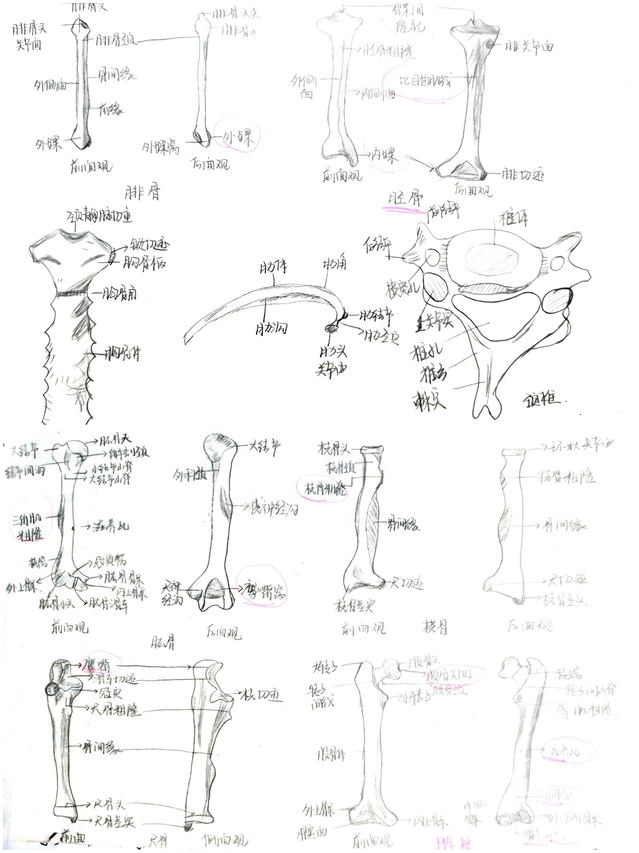 腓骨头
腓骨头
关节面
腓骨颈
外侧面
骨间缘
前缘
外踝
前面观
腓骨头尖
腓骨头
外踝窝
外踝
后面观
腓骨
髁间
隆起
胫骨粗隆
外侧
面
内侧面
内踝
前面观
腓关节面
比目鱼肌线
腓切迹
后面观
胫骨
颈静脉切迹
锁切迹
胸骨柄
胸骨角
胸骨体
肋体
肋角
肋沟
肋结节
肋颈
肋头
关节面
前结节
椎体
后结节
横突孔
上关节突
椎孔
椎弓
棘突
颈椎
大结节
肱骨头
解剖颈
结节间沟
小结节
小结节嵴
大结节嵴
三角肌
粗隆
滋养孔
桡窝
冠突窝
外上髁
内上髁
肱骨小头
肱骨滑车
前面观
大结节
外科颈
桡神经沟
尺神
经沟
鹰嘴窝
后面观
肱骨
桡骨头
桡骨颈
桡骨粗隆
骨间缘
尺切迹
桡骨茎突
前面观
环状关节面
桡骨粗隆
骨间缘
尺切迹
桡骨茎突
后面观
桡骨
鹰嘴
滑车切迹
冠突
尺骨粗隆
骨间缘
尺骨头
尺骨茎突
前面
桡切迹
侧面观
尺骨
大转子
股骨头
股骨头凹
股骨颈
小转子
股骨体
外上髁
内上髁
髌面
前面观